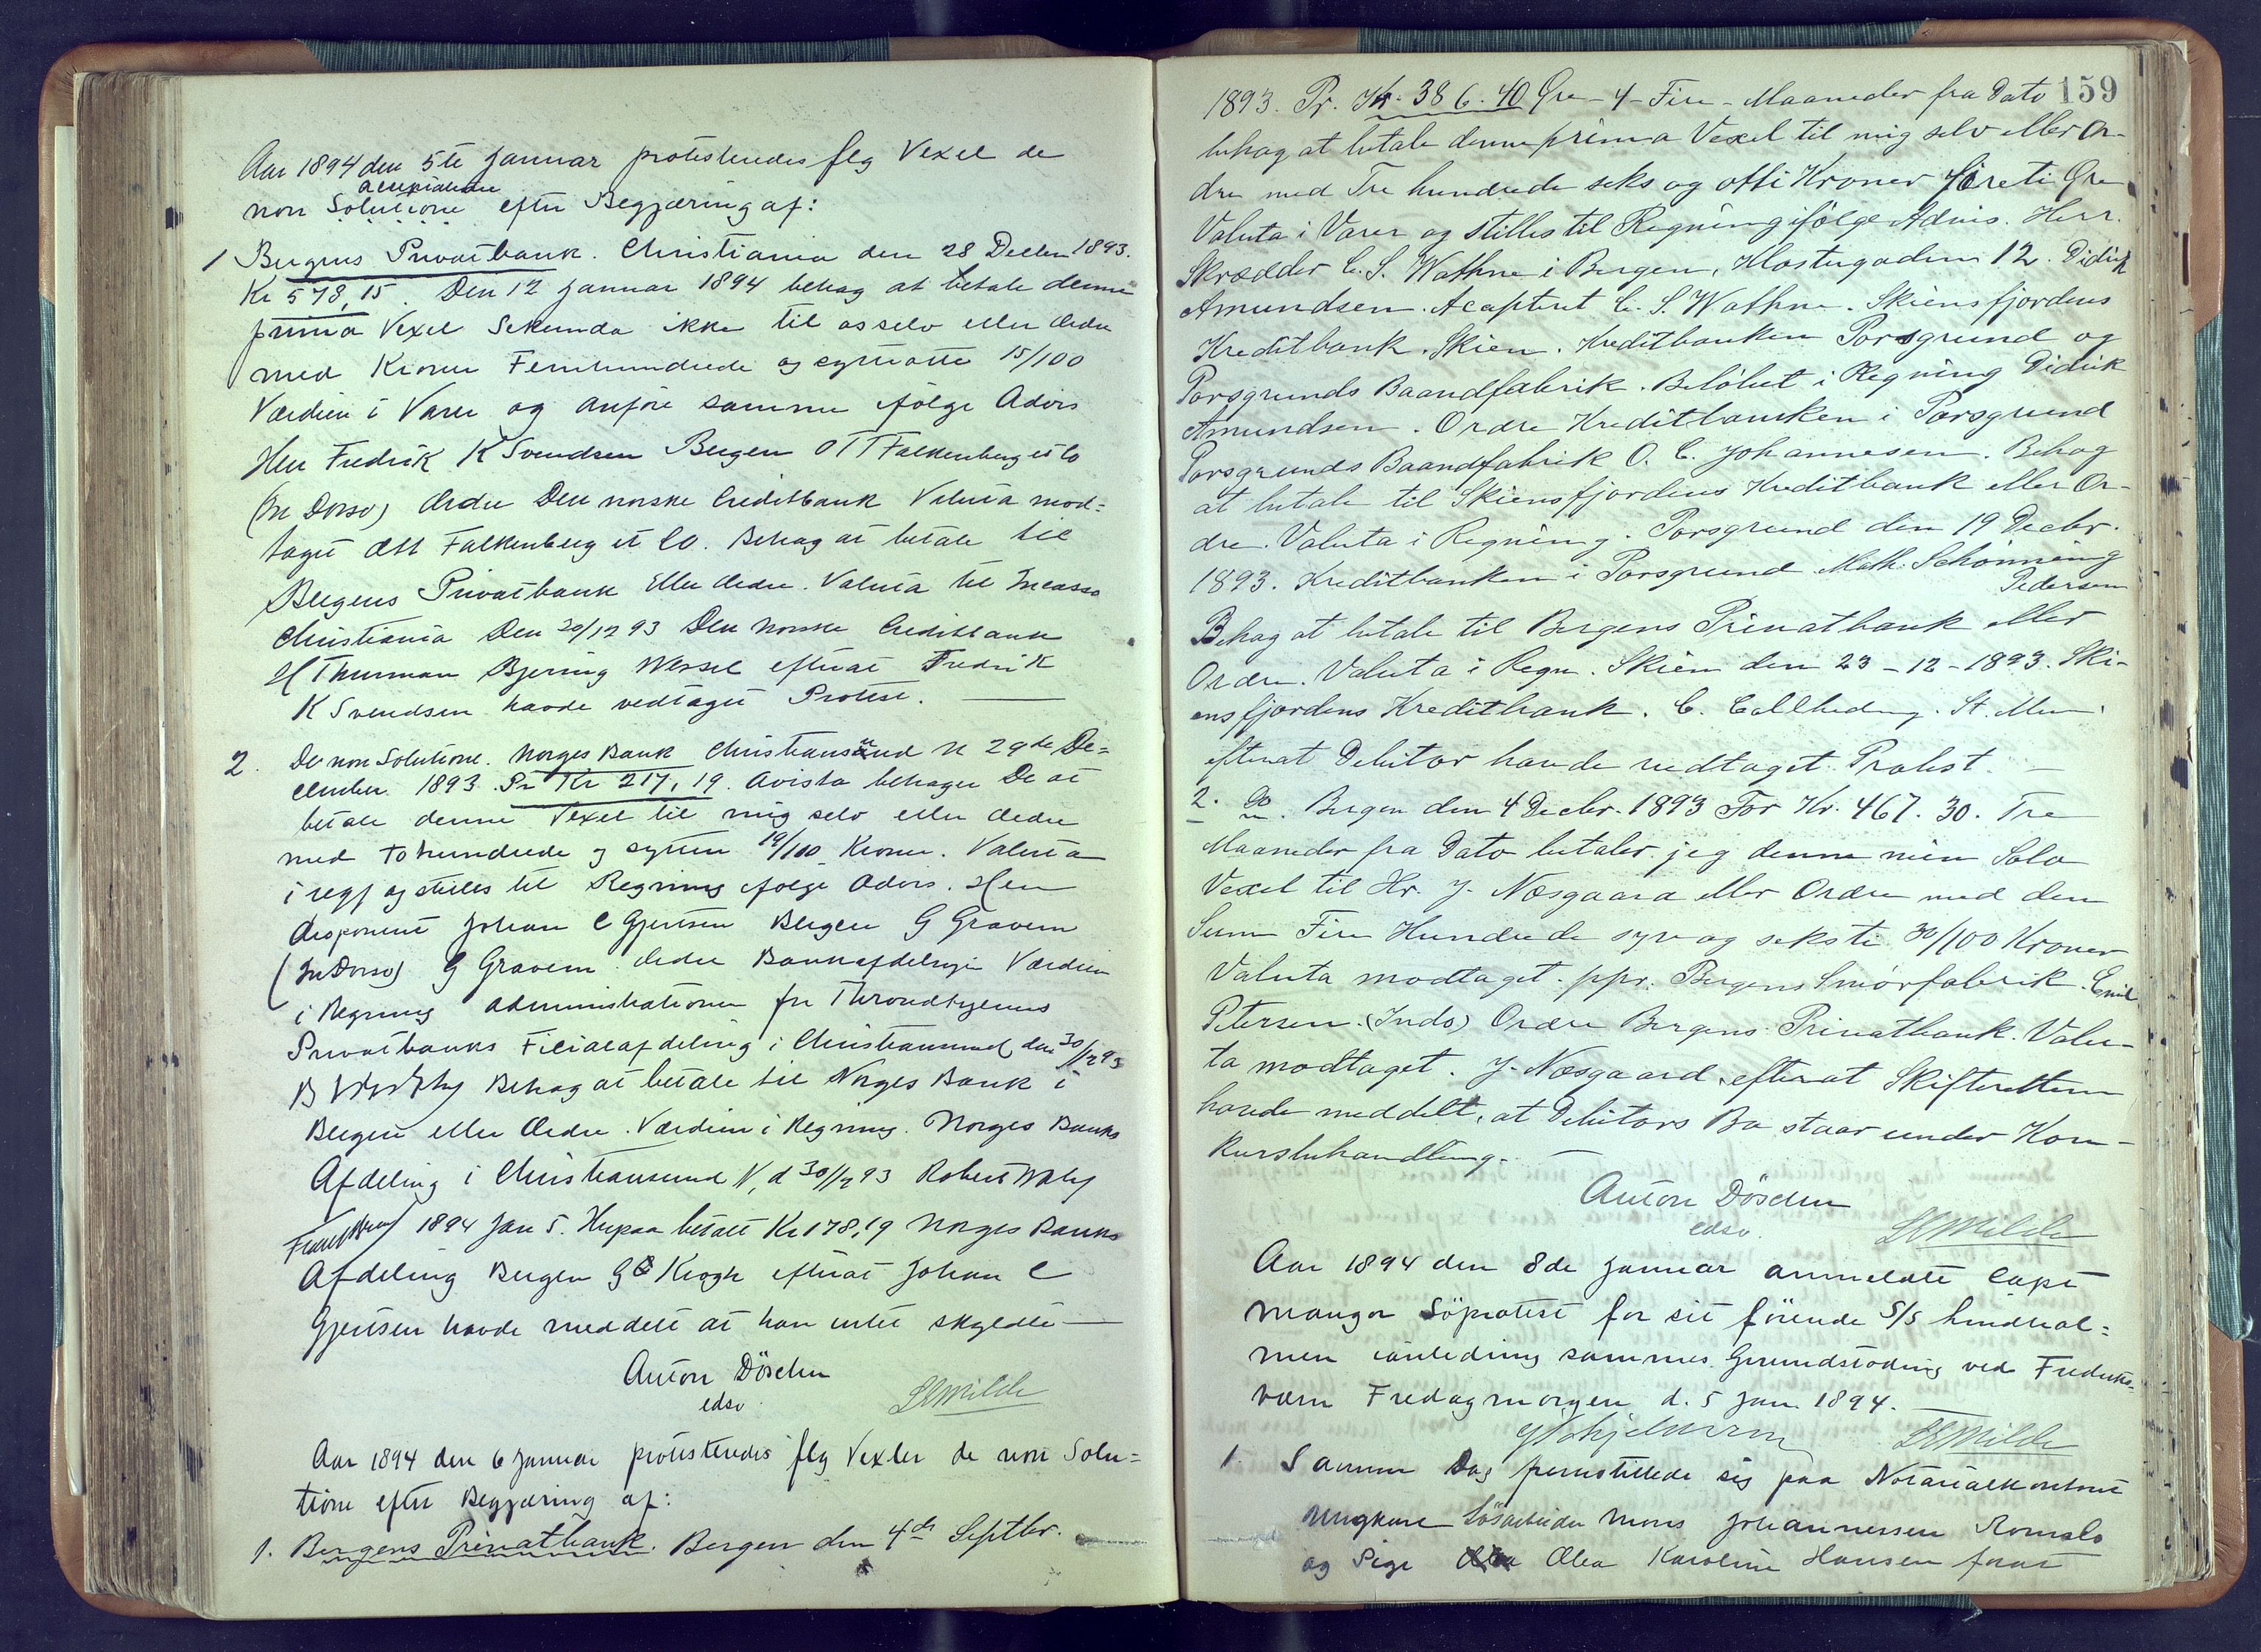 Aar 1894 den 5te Januar protesteredes flg Vexel de
non Solutione efter Begjæring af:
1 Bergens Privatbank. Christiania den 28 Decbr 1893.
Kr 578,15. Den 12 Januar 1894 behag at betale denne
prima Vexel Sekunda ikke til os selv eller Ordre
med Kroner Femhundrede og syttiotte 15/100
Værdien i Varer og anføre samme ifølge Advis
Herr Fredrik K Svendsen Bergen Ott Falkenberg et Co
(In Dorso) Ordre Den norske Creditbank Valuta mod=
taget Ott Falkenberg et Co. Behag at betale til
Bergens Privatbank Eller Ordre. Valuta til Incasso
Christiania Den 30/12 93 Den Norske Creditbank
H Thurman Bjering Wessel efterat Fredrik
K Svendsen havde vedtaget Protest.
2. De non Solutione. Norges Bank Christiansund N 29de De=
cember 1893 Pr Kr 217,19. Avista behager De at
betale denne Vexel til mig selv eller Ordre
med tohundrede og sytten 19/100 Kroner. Valuta
i regg og stilles til Regning ifølge Advis. Herr
disponent Johan C Gjertsen Bergen G Gravem
(In Dorso) G Gravem Ordre Bankafdelingen Værdien
i Regning administrationen for Throndhjems
Privatbanks Filialafdeling i Christiansund den 30/12 93
Behag at betale til Norges Bank i
Bergen eller Ordre. Værdien i Regning. Norges Banks
Afdeling i Christiansund N, d 30/12 93 Robert
1894 Jan 5. Herpaa betalt Kr 178,19 Norges Banks
Afdeling Bergen G Krogh efterat Johan C
Gjertsen havde meddelt at han intet skyldte
Anton Döscher
edsv. SEMilde
Aar 1894 den 6 Januar protesteredes flg Vexler de non Solu=
tione efter Begjæring af:
1. Bergens Privatbank. Bergen den 4de Septbr.
159
1893. Pr. Kr. 386.40 Øre - 4 - Fire - Maaneder fra Dato
behag at betale denne prima Vexel til mig selv eller Or-
dre med Tre hundrede seks og otti Kroner företi Øre
Valuta i Varer og stilles til Regning ifölge Advis. Herr.
Skrædder C. S. Wathne i Bergen, Klostergaden 12. Didrik
Amundsen. Acapteret C. S. Wathne. Skiensfjordens
Kreditbank. Skien. Kreditbanken Porsgrund og
Porsgrunds Baandfabrik. Belöbet i Regning Didrik
Amundsen. Ordre Kreditbanken i Porsgrund
Porsgrunds Baandfabrik O. C. Johannesen. Behag
at betale til Skiensfjordens Kreditbank eller Or-
dre. Valuta i Regning. Porsgrund den 19 Decbr.
1893. Kreditbanken i Porsgrund Math. Schönning
Pedersen
Behag at betale til Bergens Privatbank eller
Ordre. Valuta i Regn. Skien den 23-12-1893. Ski-
ensfjordens Kreditbank. C.
efterat Debitor havde vedtaget Protest.
2. do. Bergen den 4 Decbr. 1893 For Kr. 467.30. Tre
Maaneder fra Dato betaler jeg denne min Sola
Vexel til Hr. J. Næsgaard eller Ordre med den
Sum Fire Hundrede syv og seksti 30/100 Kroner
Valuta modtaget. ppr. Bergens Smörfabrik. Emil
Petersen. (Indo) Ordre Bergens Privatbank. Valu-
ta modtaget. J. Næsgaard, efterat Skifteretten
havde meddelt, at Debitors Bo staar under Kon-
kursbehandling.
Anton Döscher
edsv. SEMilde
Aar 1894 den 8de Januar anmeldte Capt
Mangor Söprotest for sit förende S/S Lindhol=
men ianledning sammes Grundstödning ved Frederiks-
værn Fredagmorgen d. 5 Jan. 1894.
SEMilde
1. Samme Dag fremstillede sig paa Notarialkontoret
Ungkarl Lösarbeider Mons Johannessen Romslo
og Pige Olea Karoline Hansen forat